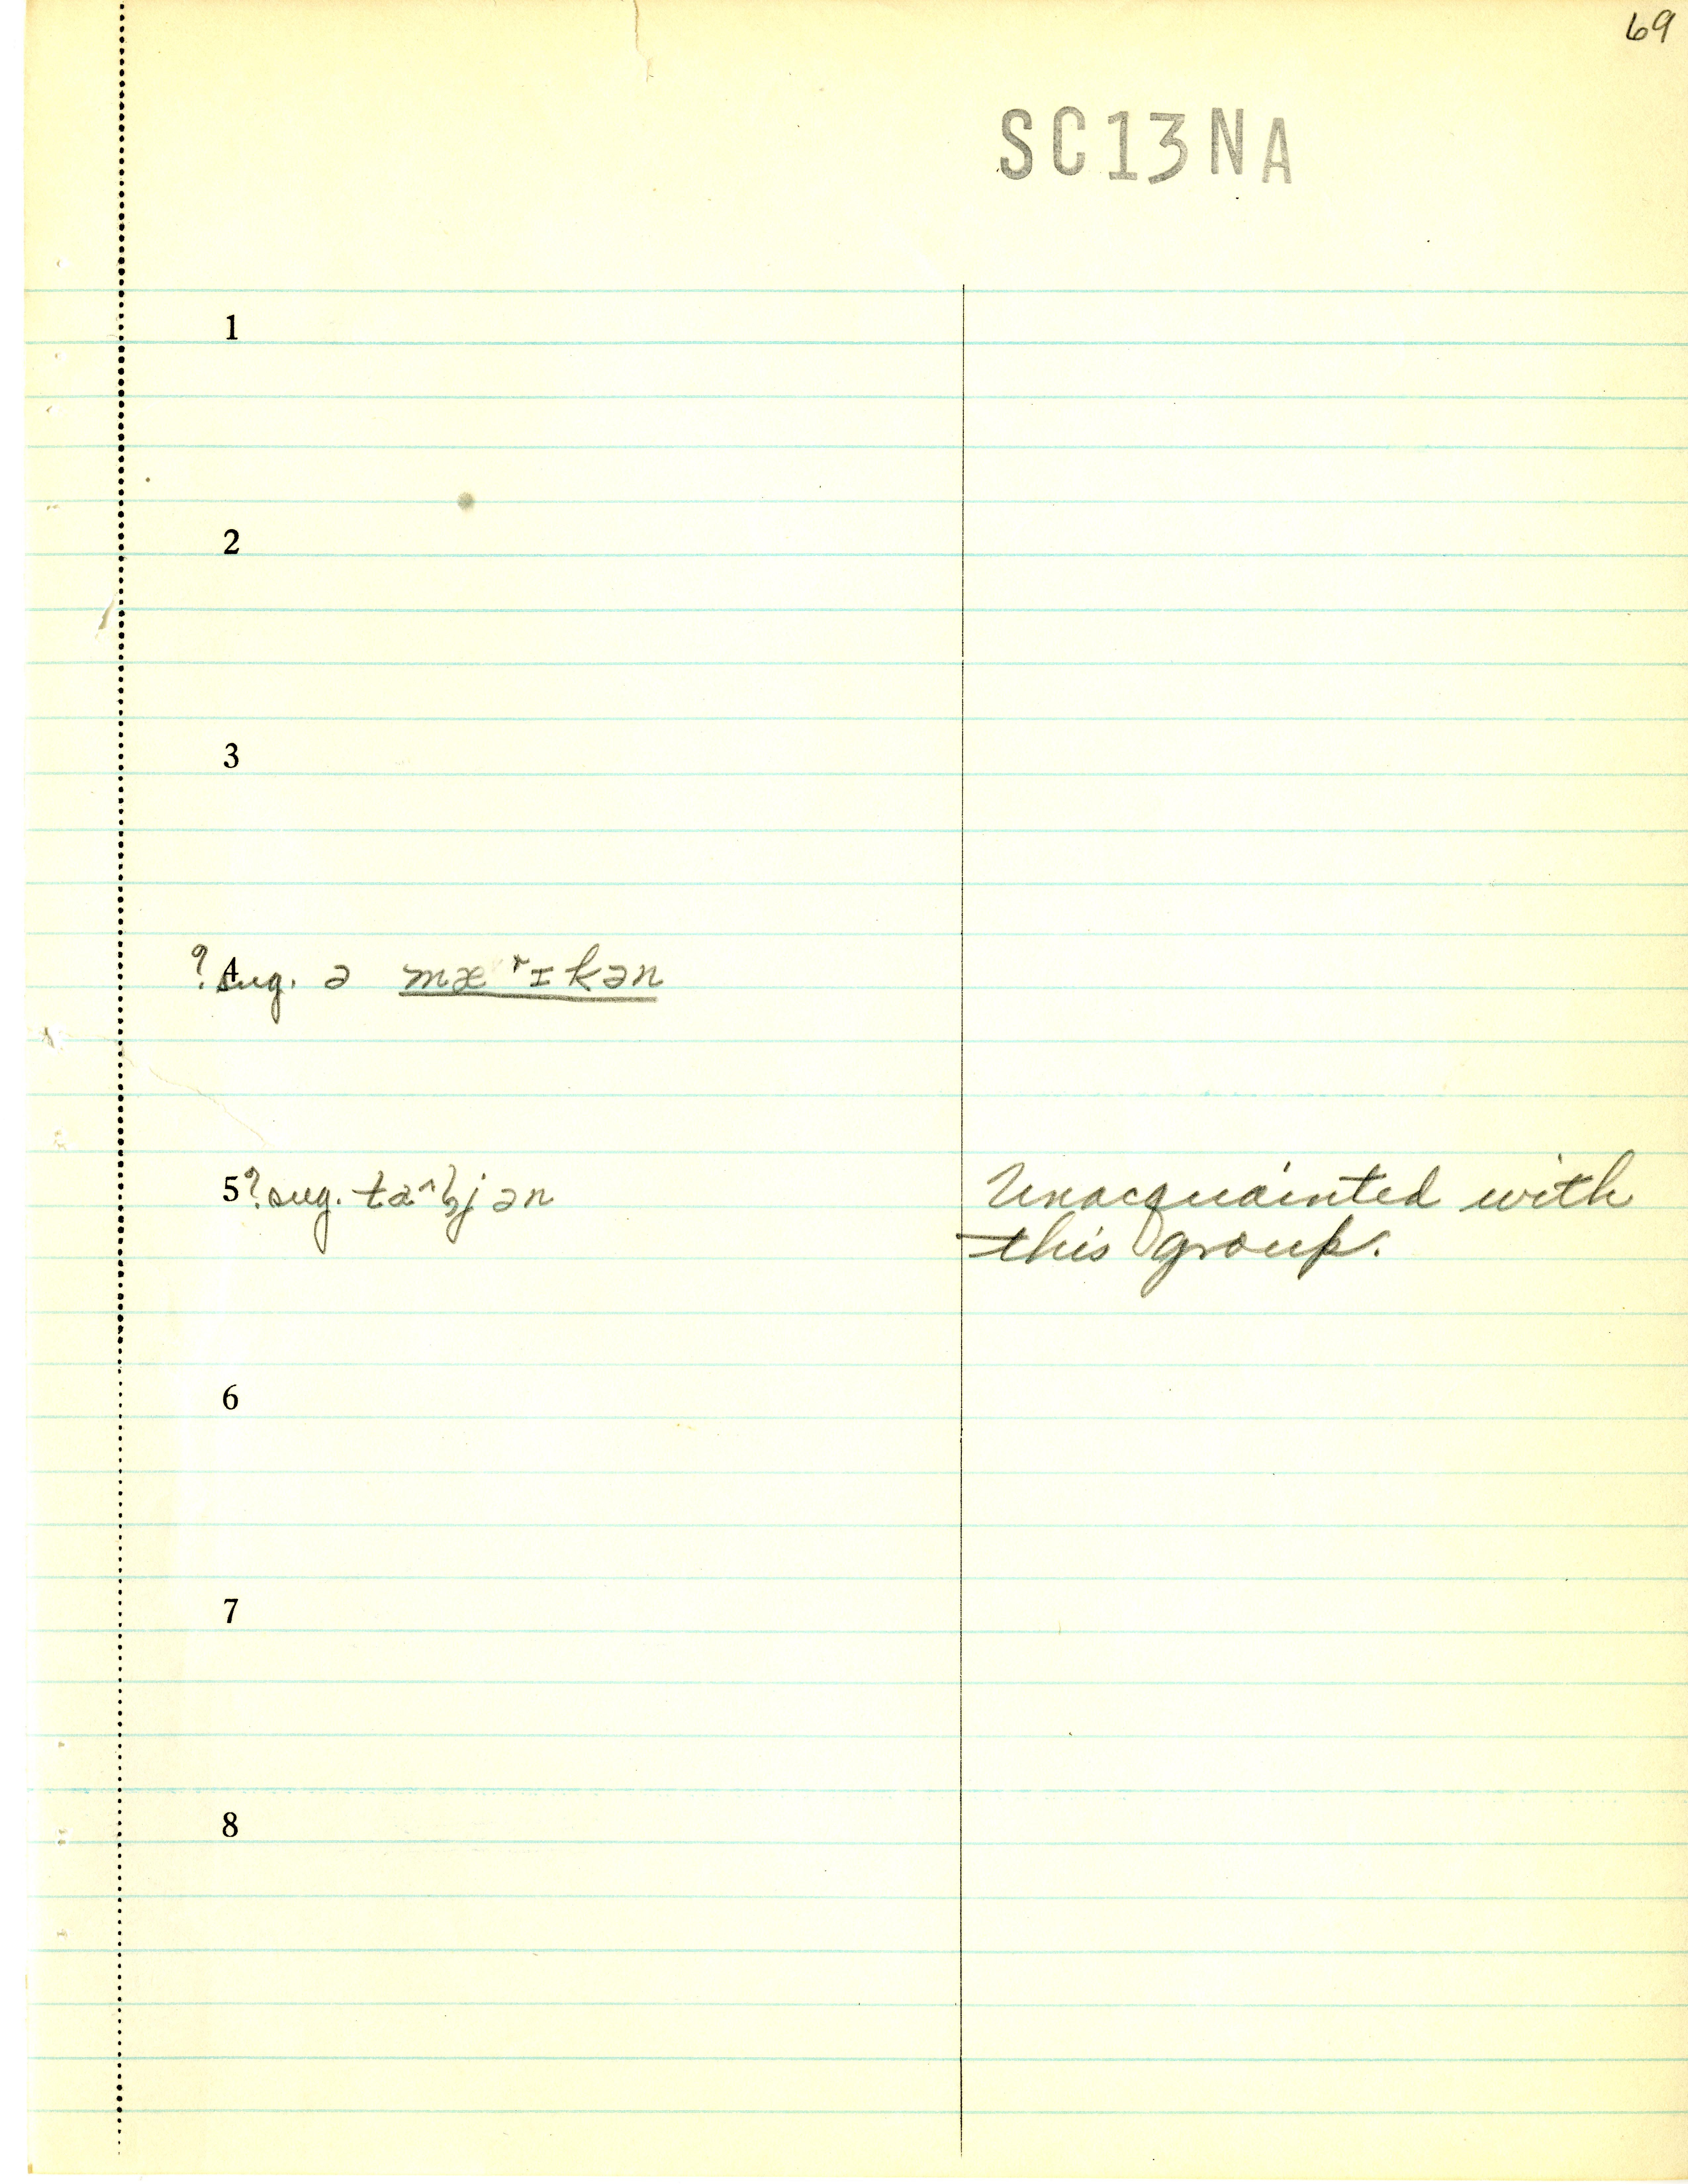 69
SC13NA
1
2
3
4 ? sug. ə mæ ɪkən
5 ? sug. ən
Unacquainted with
this group.
6
7
8